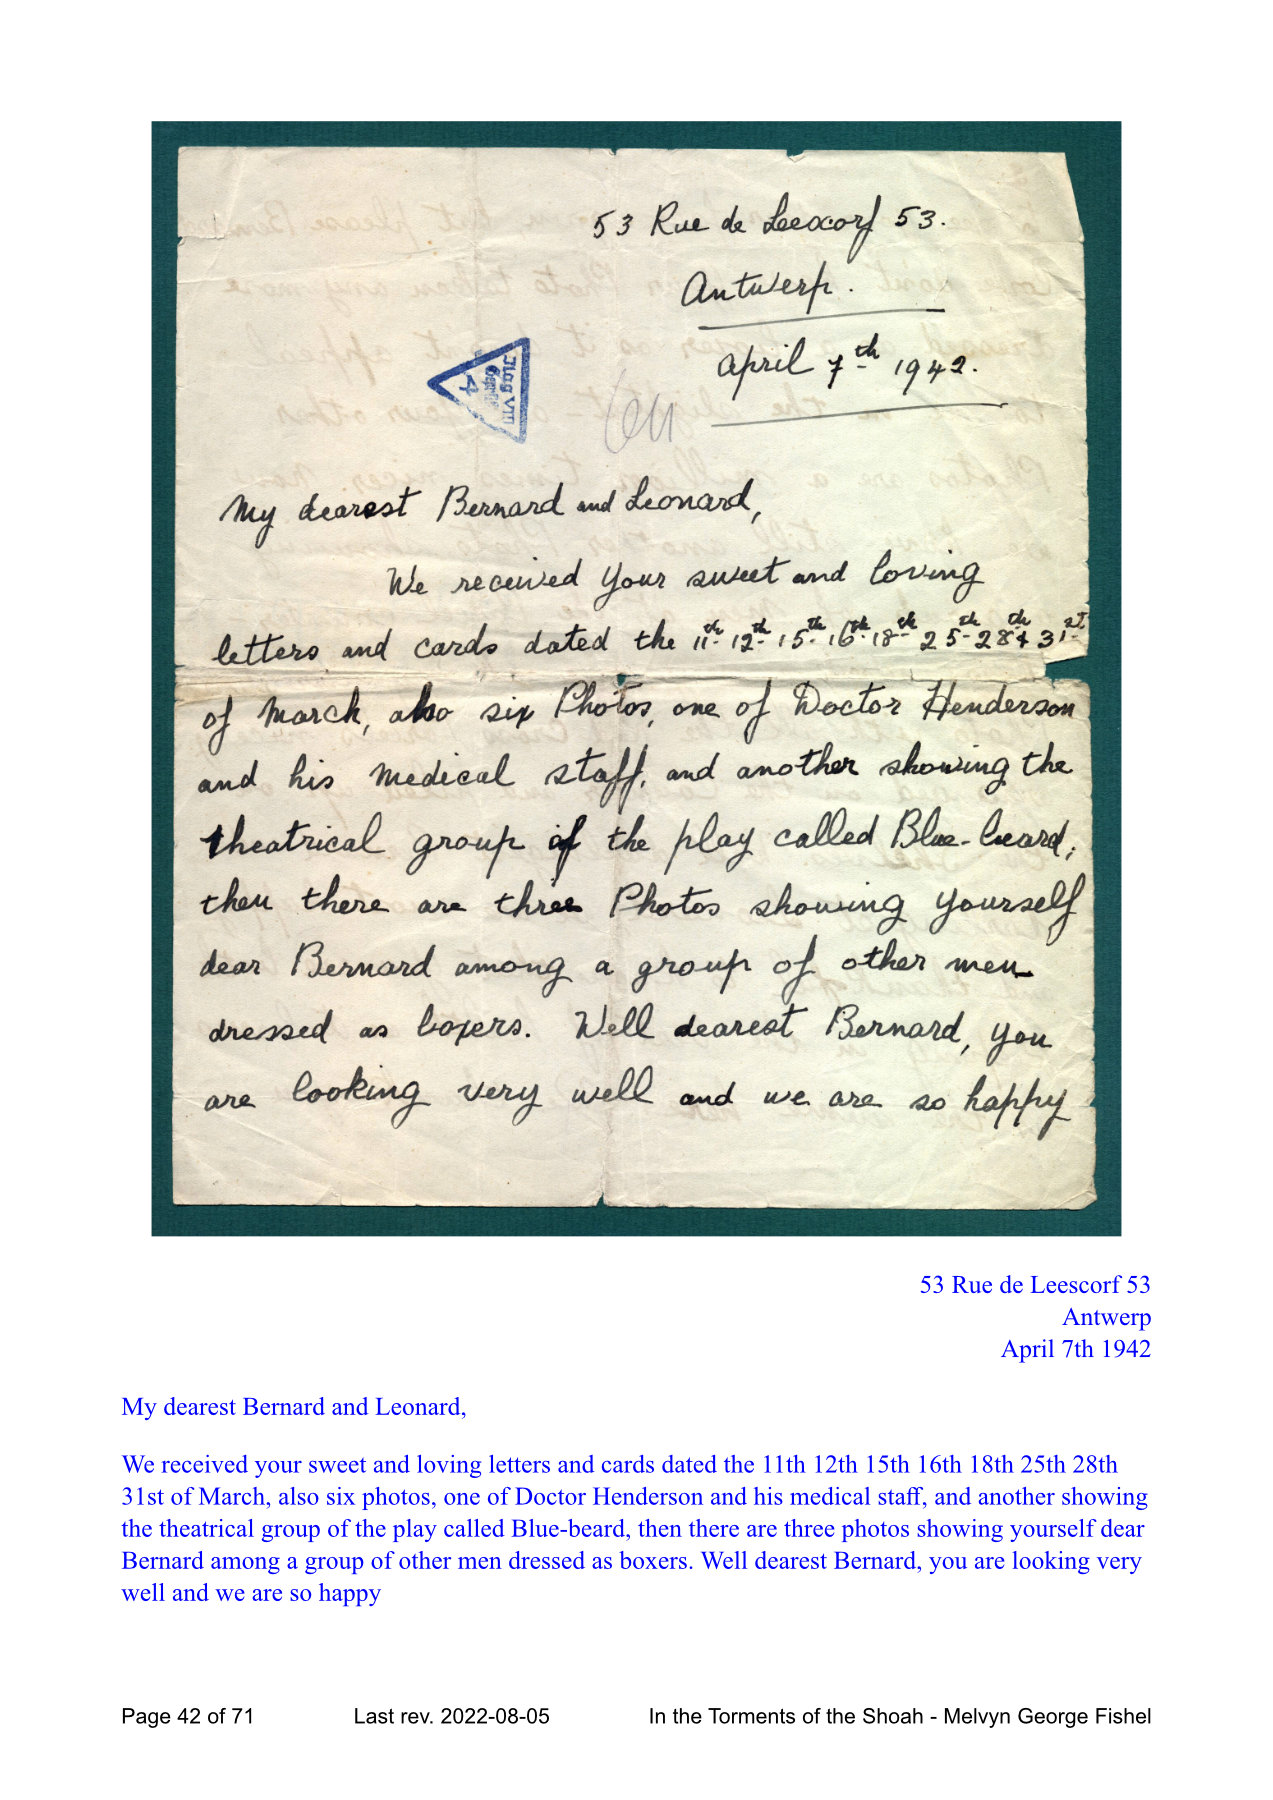 53 Rue de Leescorf 53.
Antwerp.
April 7th 1942.
Ilag VIII
Geprüft
4
My dearest Bernard and Leonard,
We received your sweet and loving
letters and cards dated the 11th 12th 15th 16th 18th 25th 28th & 31st
of March, also six Photos, one of Doctor Henderson
and his medical staff, and another showing the
theatrical group of the play called Blue-beard,
then there are three Photos showing yourself
dear Bernard among a group of other men
dressed as boxers. Well dearest Bernard, you
are looking very well and we are so happy
53 Rue de Leescorf 53
Antwerp
April 7th 1942
My dearest Bernard and Leonard,
We received your sweet and loving letters and cards dated the 11th 12th 15th 16th 18th 25th 28th
31st of March, also six photos, one of Doctor Henderson and his medical staff, and another showing
the theatrical group of the play called Blue-beard, then there are three photos showing yourself dear
Bernard among a group of other men dressed as boxers. Well dearest Bernard, you are looking very
well and we are so happy
Page 42 of 71 Last rev. 2022-08-05 In the Torments of the Shoah - Melvyn George Fishel